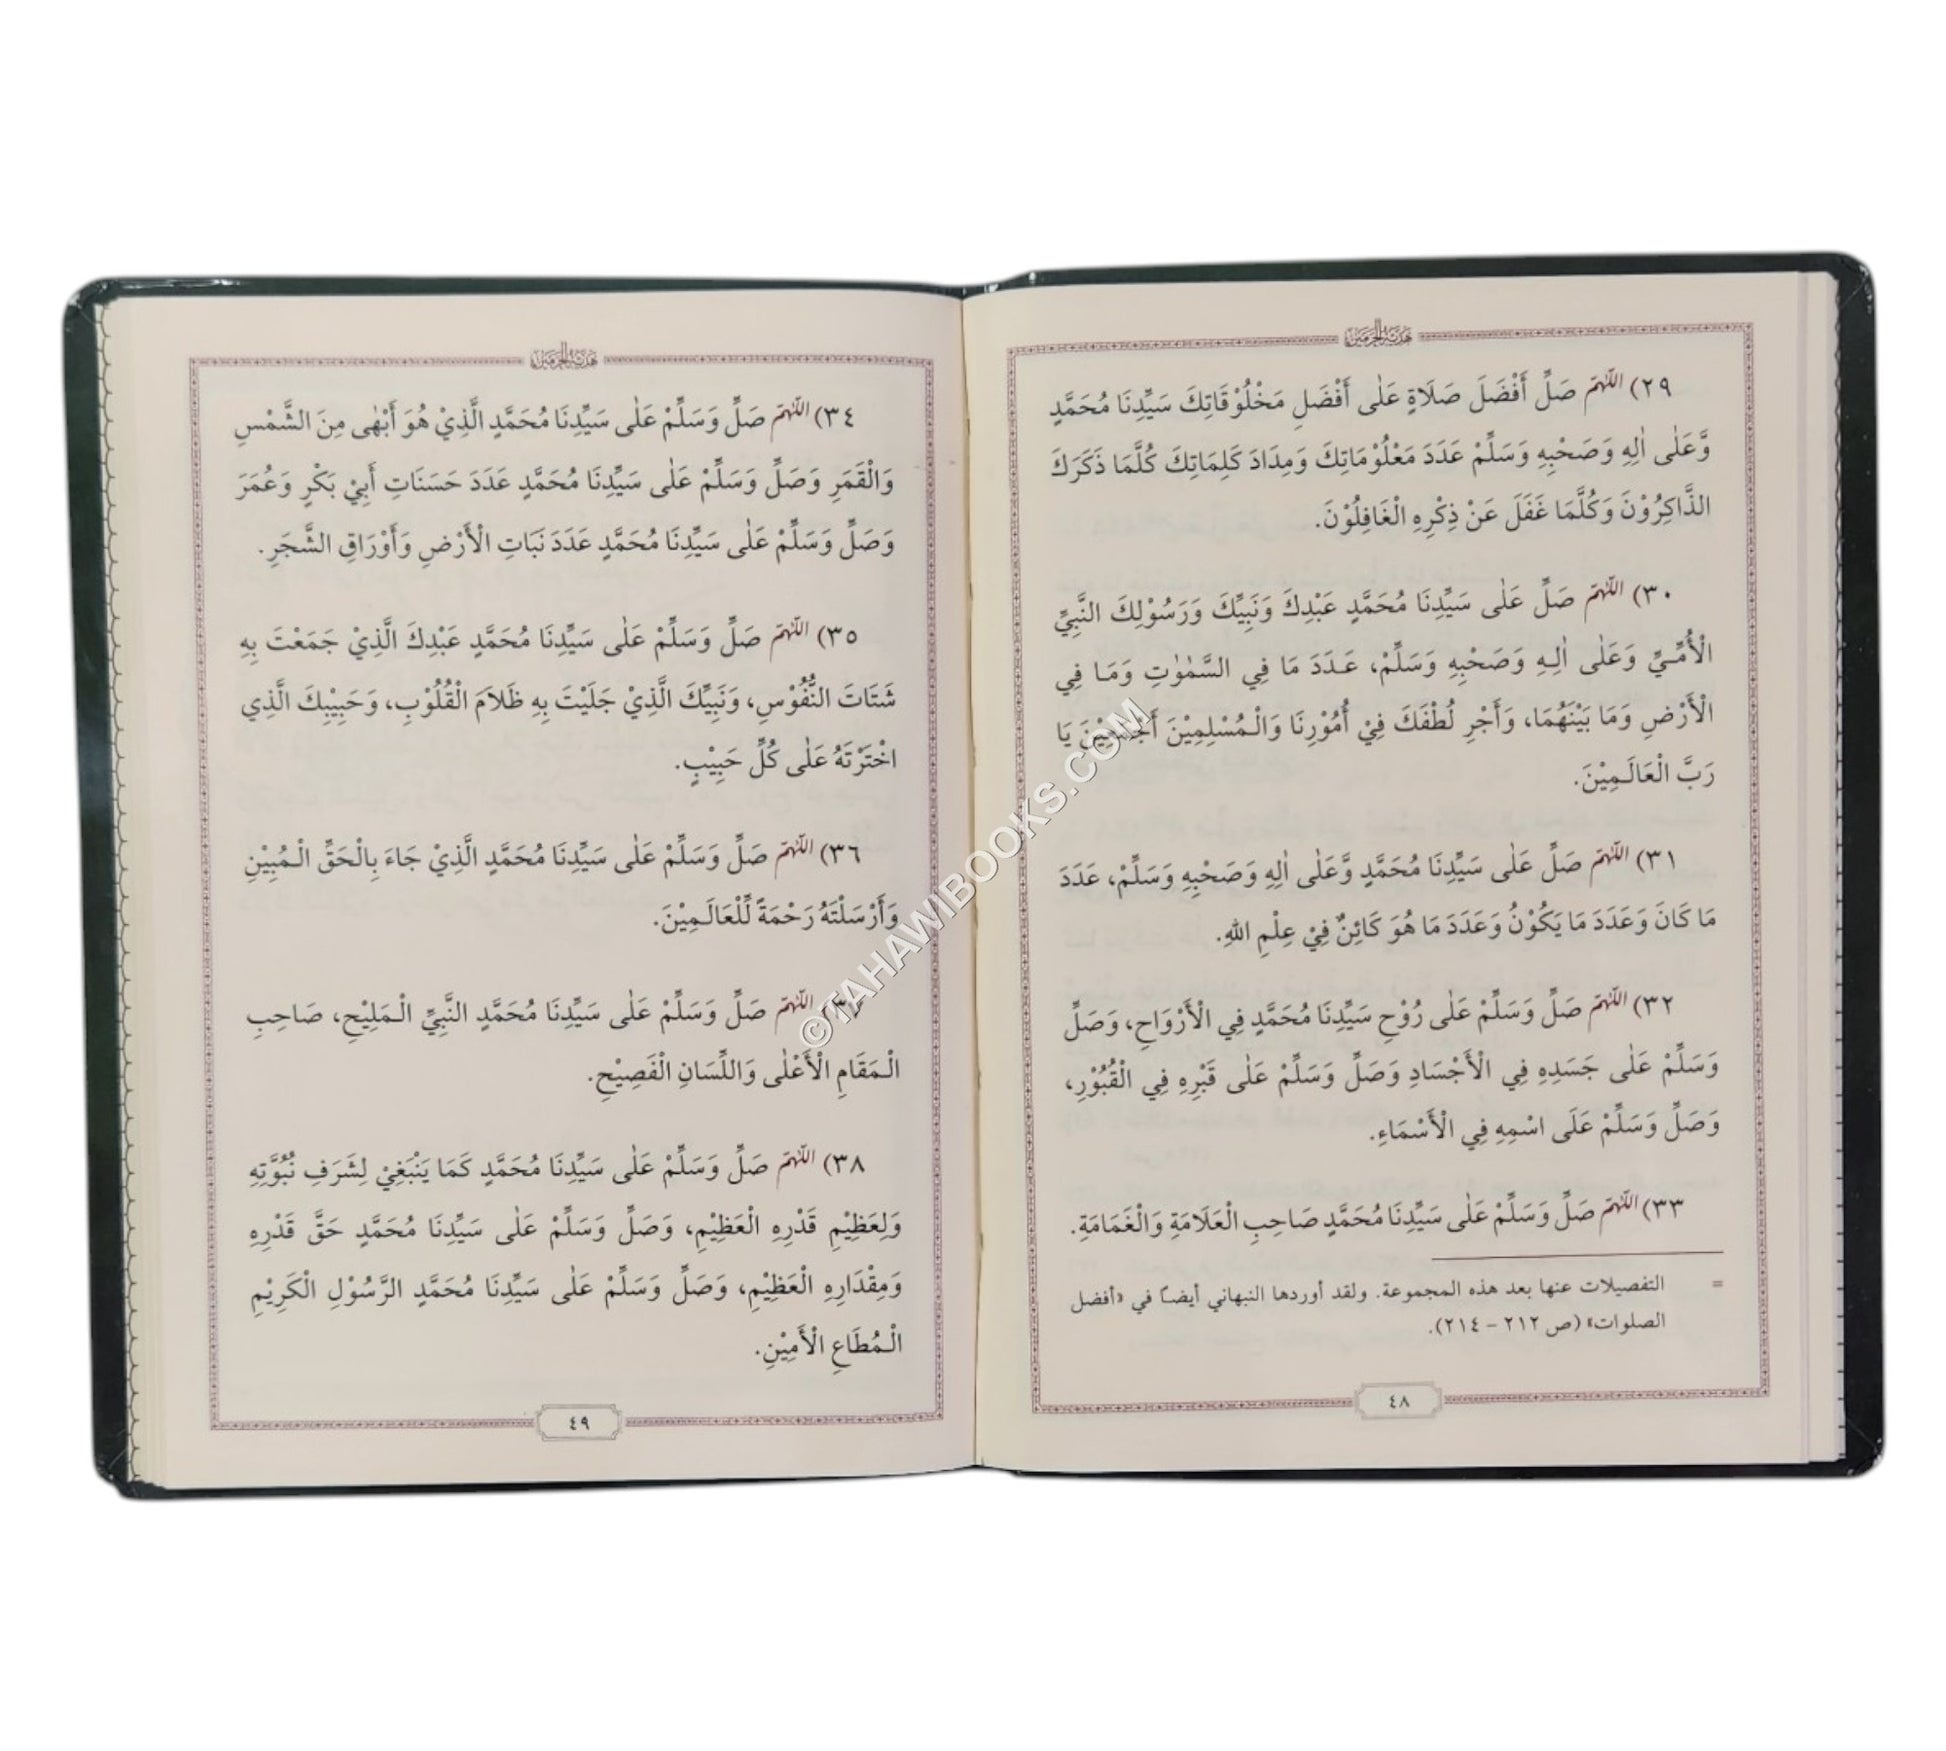 هدية الحرمين
٢٩) اللّٰهم صَلِّ أَفْضَلَ صَلَاةٍ عَلٰى أَفْضَلِ مَخْلُوْقَاتِكَ سَيِّدِنَا مُحَمَّدٍ
وَّعَلٰى اٰلِهِ وَصَحْبِهِ وَسَلِّمْ عَدَدَ مَعْلُوْمَاتِكَ وَمِدَادَ كَلِمَاتِكَ كُلَّمَا ذَكَرَكَ
الذَّاكِرُوْنَ وَكُلَّمَا غَفَلَ عَنْ ذِكْرِهِ الْغَافِلُوْنَ.
٣٠) اللّٰهم صَلِّ عَلٰى سَيِّدِنَا مُحَمَّدٍ عَبْدِكَ وَنَبِيِّكَ وَرَسُوْلِكَ النَّبِيِّ
الْأُمِّيِّ وَعَلٰى اٰلِهِ وَصَحْبِهِ وَسَلِّمْ، عَدَدَ مَا فِي السَّمٰوٰتِ وَمَا فِي
الْأَرْضِ وَمَا بَيْنَهُمَا، وَأَجْرِ لُطْفَكَ فِيْ أُمُوْرِنَا وَالْمُسْلِمِيْنَ أَجْمَعِيْنَ يَا
رَبَّ الْعَالَمِيْنَ.
٣١) اللّٰهم صَلِّ عَلٰى سَيِّدِنَا مُحَمَّدٍ وَّعَلٰى اٰلِهِ وَصَحْبِهِ وَسَلِّمْ، عَدَدَ
مَا كَانَ وَعَدَدَ مَا يَكُوْنُ وَعَدَدَ مَا هُوَ كَائِنٌ فِيْ عِلْمِ اللهِ.
٣٢) اللّٰهم صَلِّ وَسَلِّمْ عَلٰى رُوْحِ سَيِّدِنَا مُحَمَّدٍ فِي الْأَرْوَاحِ، وَصَلِّ
وَسَلِّمْ عَلٰى جَسَدِهِ فِي الْأَجْسَادِ وَصَلِّ وَسَلِّمْ عَلٰى قَبْرِهِ فِي الْقُبُوْرِ،
وَصَلِّ وَسَلِّمْ عَلَى اسْمِهِ فِي الْأَسْمَاءِ.
٣٣) اللّٰهم صَلِّ وَسَلِّمْ عَلٰى سَيِّدِنَا مُحَمَّدٍ صَاحِبِ الْعَلَامَةِ وَالْغَمَامَةِ.
= التفصيلات عنها بعد هذه المجموعة. ولقد أوردها النبهاني أيضاً في «أفضل
الصلوات» (ص ٢١٢ – ٢١٤).
٤٨
هدية الحرمين
٣٤) اللّٰهم صَلِّ وَسَلِّمْ عَلٰى سَيِّدِنَا مُحَمَّدٍ الَّذِيْ هُوَ أَبْهٰى مِنَ الشَّمْسِ
وَالْقَمَرِ وَصَلِّ وَسَلِّمْ عَلٰى سَيِّدِنَا مُحَمَّدٍ عَدَدَ حَسَنَاتِ أَبِيْ بَكْرٍ وَعُمَرَ
وَصَلِّ وَسَلِّمْ عَلٰى سَيِّدِنَا مُحَمَّدٍ عَدَدَ نَبَاتِ الْأَرْضِ وَأَوْرَاقِ الشَّجَرِ.
٣٥) اللّٰهم صَلِّ وَسَلِّمْ عَلٰى سَيِّدِنَا مُحَمَّدٍ عَبْدِكَ الَّذِيْ جَمَعْتَ بِهِ
شَتَاتَ النُّفُوْسِ، وَنَبِيِّكَ الَّذِيْ جَلَيْتَ بِهِ ظَلَامَ الْقُلُوْبِ، وَحَبِيْبِكَ الَّذِي
اخْتَرْتَهُ عَلٰى كُلِّ حَبِيْبٍ.
٣٦) اللّٰهم صَلِّ وَسَلِّمْ عَلٰى سَيِّدِنَا مُحَمَّدٍ الَّذِيْ جَاءَ بِالْحَقِّ الْمُبِيْنِ
وَأَرْسَلْتَهُ رَحْمَةً لِّلْعَالَمِيْنَ.
٣٧) اللّٰهم صَلِّ وَسَلِّمْ عَلٰى سَيِّدِنَا مُحَمَّدٍ النَّبِيِّ الْمَلِيْحِ، صَاحِبِ
الْمَقَامِ الْأَعْلٰى وَاللِّسَانِ الْفَصِيْحِ.
٣٨) اللّٰهم صَلِّ وَسَلِّمْ عَلٰى سَيِّدِنَا مُحَمَّدٍ كَمَا يَنْبَغِيْ لِشَرَفِ نُبُوَّتِهِ
وَلِعَظِيْمِ قَدْرِهِ الْعَظِيْمِ، وَصَلِّ وَسَلِّمْ عَلٰى سَيِّدِنَا مُحَمَّدٍ حَقَّ قَدْرِهِ
وَمِقْدَارِهِ الْعَظِيْمِ، وَصَلِّ وَسَلِّمْ عَلٰى سَيِّدِنَا مُحَمَّدٍ الرَّسُوْلِ الْكَرِيْمِ
الْمُطَاعِ الْأَمِيْنِ.
٤٩
©TAHAWIBOOKS.COM